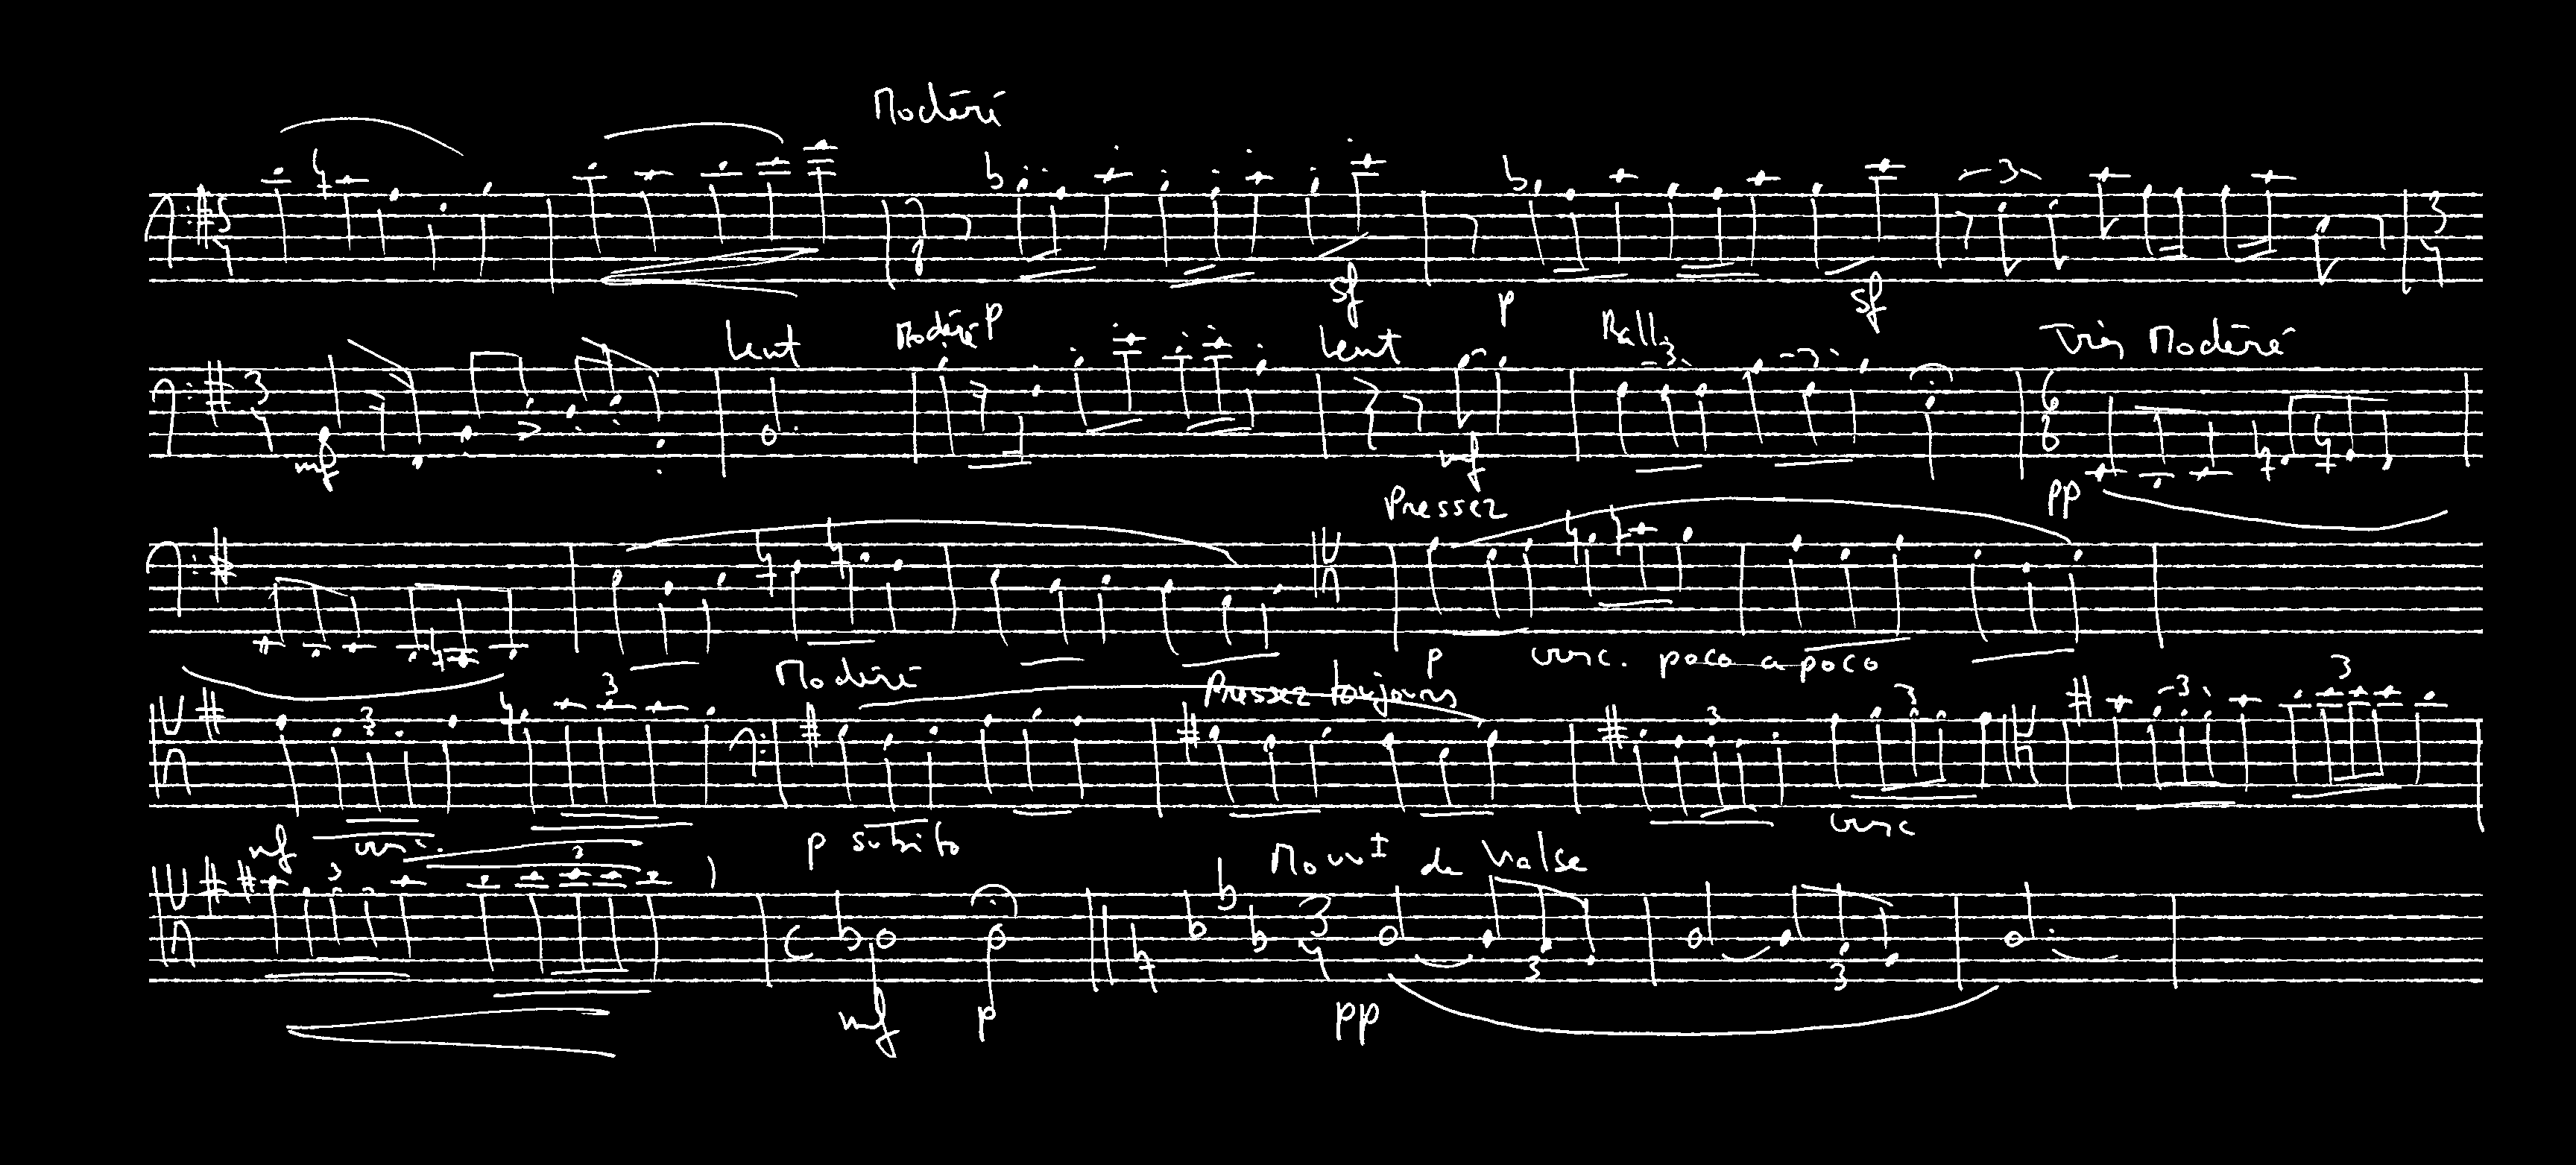 Modéré
sf p sf
3
Lent Modéré p Lent Rall. Très Modéré
3 3
mf mf pp
Pressez
p cresc. poco a poco
Modéré Pressez toujours
3 3 3 3 3 3
mf cresc. p subito cresc
Mouvt de Valse
3 3
3 3
mf p pp